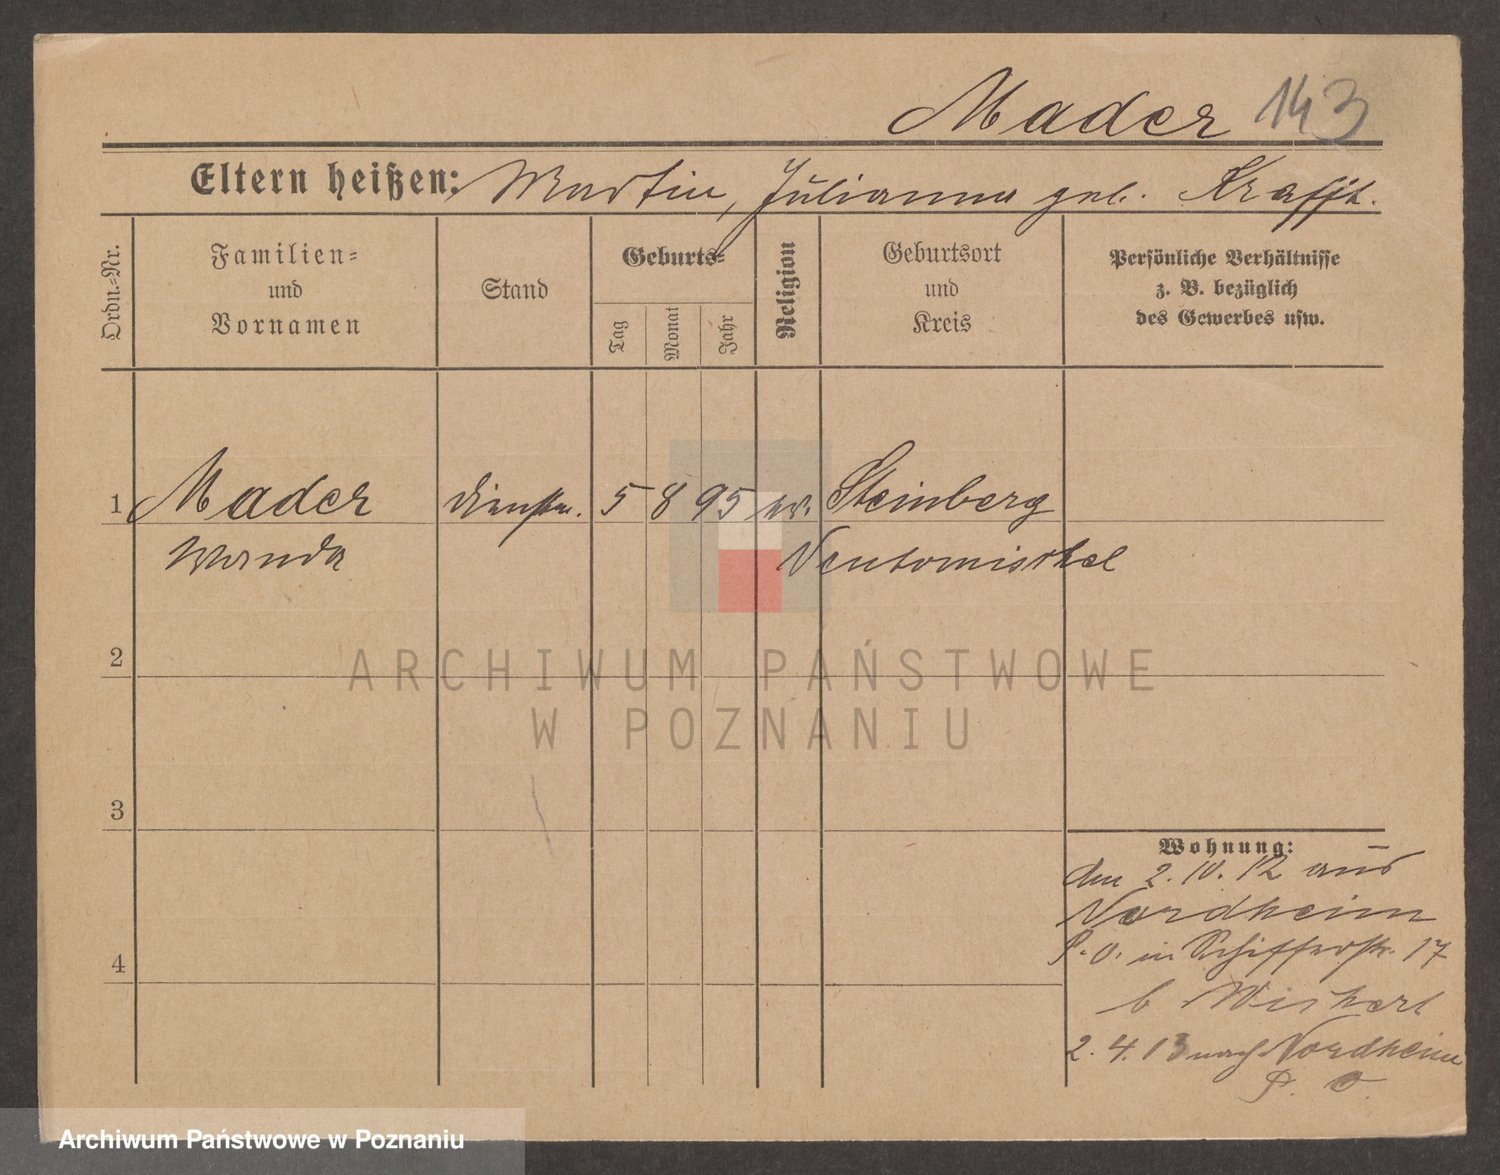 Mader 143
Eltern heißen: Martin, Julianna geb. Krafft.
Ordn.=Nr.
Familien=
und
Vornamen
Stand
Geburts=
Tag
Monat
Jahr
Religion
Geburtsort
und
Kreis
Persönliche Verhältnisse
z. B. bezüglich
des Gewerbes usw.
1 Mader Dienstm. 5 8 95 ev. Steinberg
Wanda Neutomischel
2
ARCHIWUM PAŃSTWOWE
W POZNANIU
3
Wohnung:
den 2. 10. 12 aus
Nordheim
P. O. in Schifferstr. 17
b Wiskert
2. 4. 13 nach Nordheim
P. O.
4
Archiwum Państwowe w Poznaniu